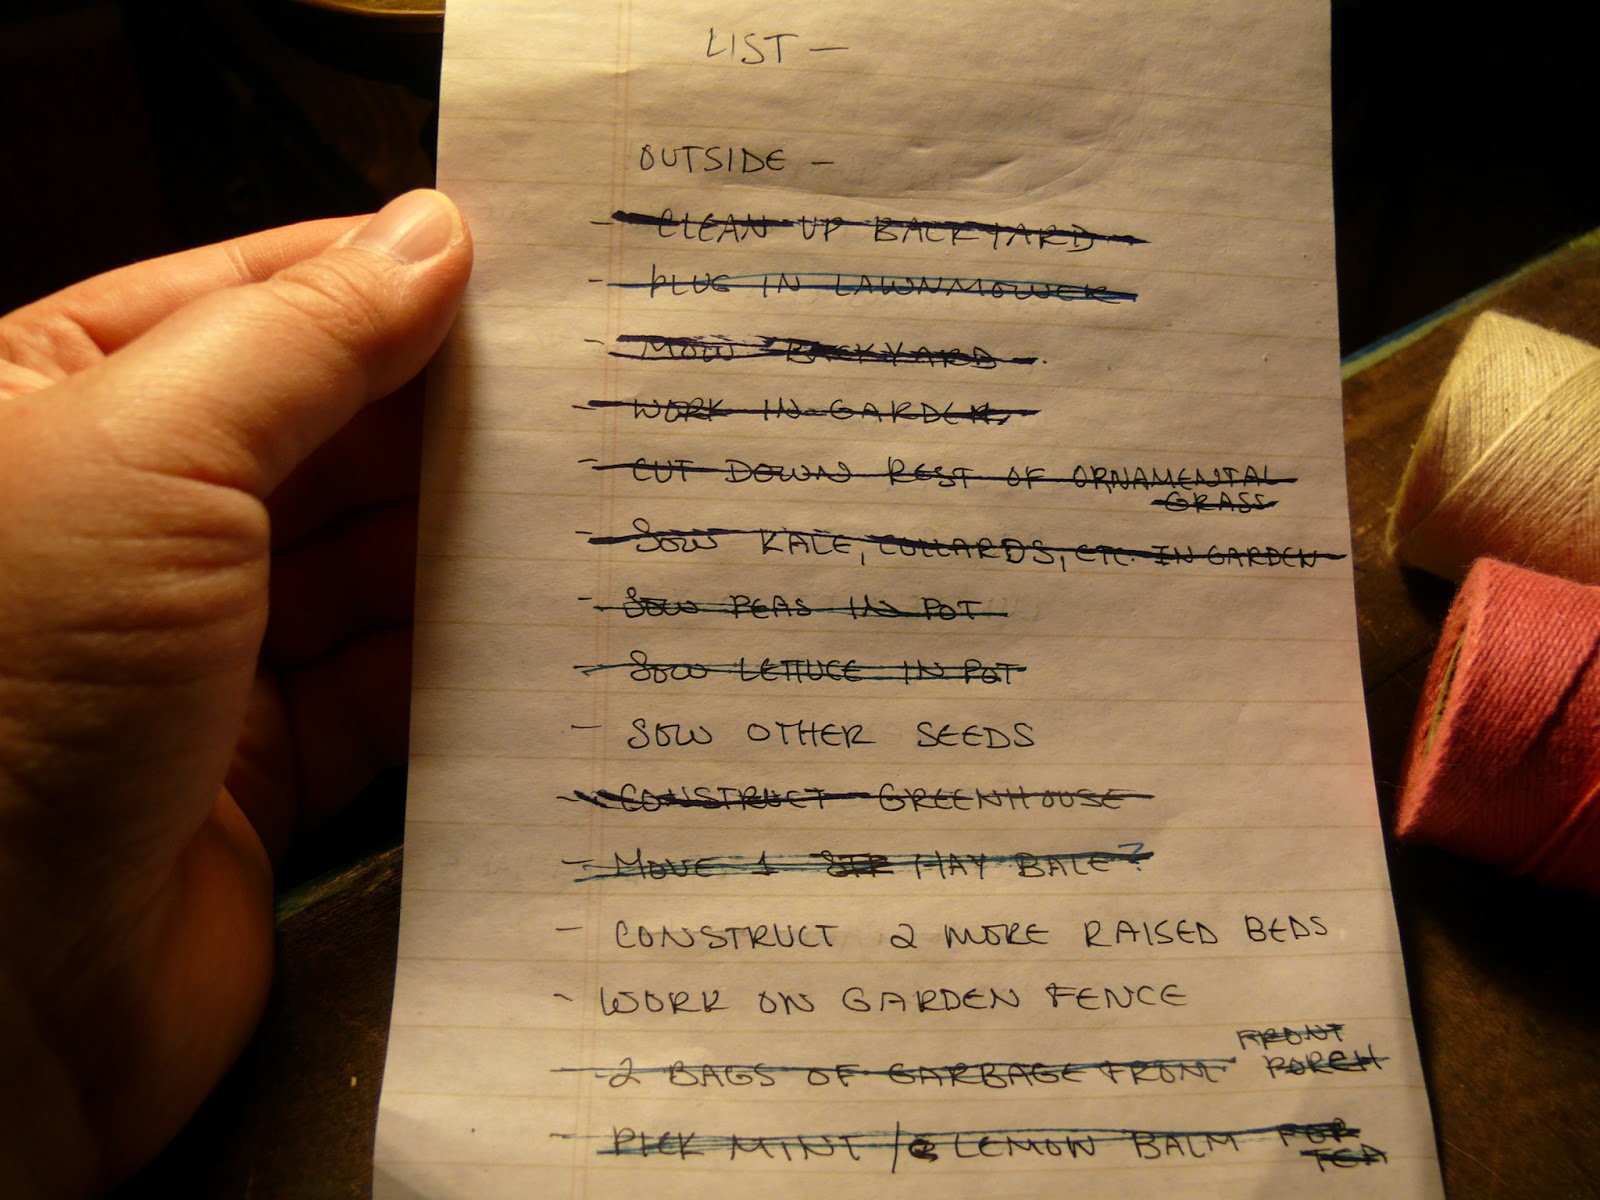 LIST —
OUTSIDE —
- CLEAN UP BACKYARD
- PLUG IN LAWNMOWER
- MOW BACKYARD
- WORK IN GARDEN
- CUT DOWN REST OF ORNAMENTAL
GRASS
- SOW KALE, COLLARDS, ETC. IN GARDEN
- SOW PEAS IN POT
- SOW LETTUCE IN POT
- SOW OTHER SEEDS
- CONSTRUCT GREENHOUSE
- MOVE 1 HAY BALE?
- CONSTRUCT 2 MORE RAISED BEDS
- WORK ON GARDEN FENCE
- 2 BAGS OF GARBAGE FROM FRONT
PORCH
- PICK MINT / LEMON BALM FOR
TEA